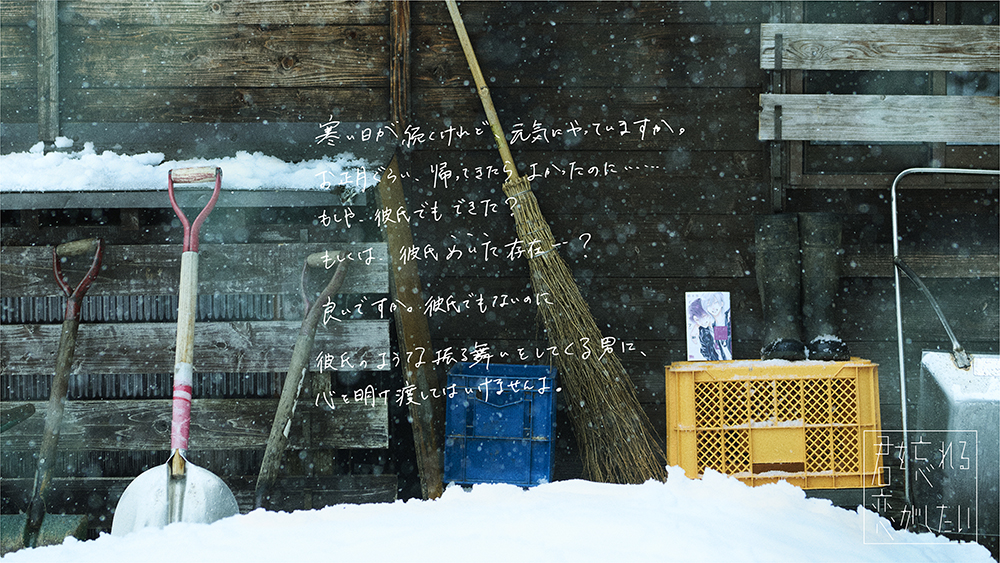 寒い日が続くけれど 元気にやっていますか。
お正月ぐらい、帰ってきたら よかったのに……
もしや、彼氏でも できた？
もしくは、彼氏めいた存在…？
良いですか。彼氏でもないのに
彼氏のような振る舞いをしてくる男に、
心を明け渡してはいけませんよ。
君を忘れる
恋がしたい